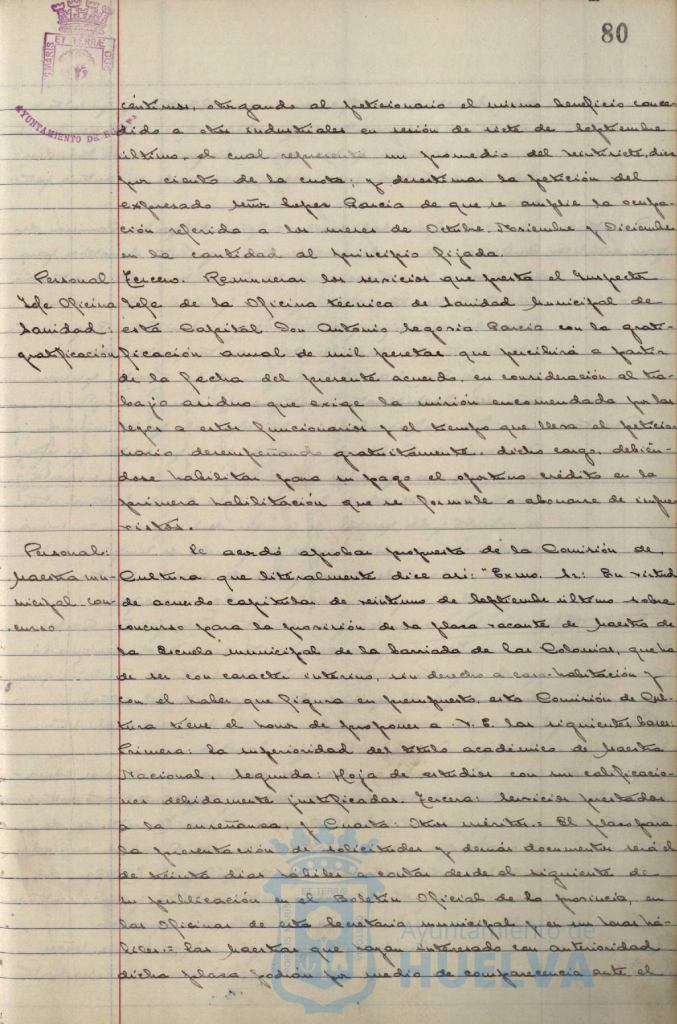 80
ET TERRÆ
AYUNTAMIENTO DE HUELVA
céntimos, otorgando al peticionario el mismo beneficio conce-
dido a otros industriales en sesión de siete de Septiembre
último, el cual representa un promedio del veintisiete, diez
por ciento de la cuota; y desestimar la petición del
expresado Señor Lopez Garcia de que se amplie la ocupa-
ción referida a los meses de Octubre, Noviembre y Diciembre
en la cantidad al principio fijada.
Personal
Jefe Oficina
Sanidad:
gratificación
Tercero. Remunerar los servicios que presta el Inspector
Jefe de la Oficina tecnica de Sanidad Municipal de
esta Capital Don Antonio Segovia Garcia con la grati-
ficación anual de mil pesetas que percibirá a partir
de la fecha del presente acuerdo, en consideración al tra-
bajo asiduo que exige la misión encomendada por las
leyes a estos funcionarios y el tiempo que lleva el peticio-
nario desempeñando gratuitamente dicho cargo, debién-
dose habilitar para su pago el oportuno crédito en la
primera habilitación que se formule o abonarse de impre-
vistos.
Personal:
Maestra mu-
nicipal con-
curso
Se acordó aprobar propuesta de la Comisión de
Cultura que literalmente dice asi: "Exmo. Sr: En virtud
de acuerdo capitular de veintiuno de Septiembre último sobre
concurso para la provisión de la plaza vacante de Maestra de
la Escuela municipal de la barriada de las Colonias, que ha
de ser con caracter interino, sin derecho a casa-habitación y
con el haber que figura en presupuesto, esta Comisión de Cul-
tura tiene el honor de proponer a V. E. las siguientes bases:
Primera: La superioridad del título académico de Maestra
Nacional. Segunda: Hoja de estudios con sus calificacio-
nes debidamente justificadas. Tercera: Servicios prestados
a la enseñanza, y Cuarta: Otros méritos.= El plazo para
la presentación de solicitudes y demás documentos será el
de treinta dias hábiles a contar desde el siguiente de
su publicación en el Boletin Oficial de la provincia, en
las Oficinas de esta Secretaria municipal y en sus horas há-
biles.= Las Maestras que hayan interesado con anterioridad
dicha plaza podrán por medio de comparecencia ante el
Ayuntamiento de
HUELVA